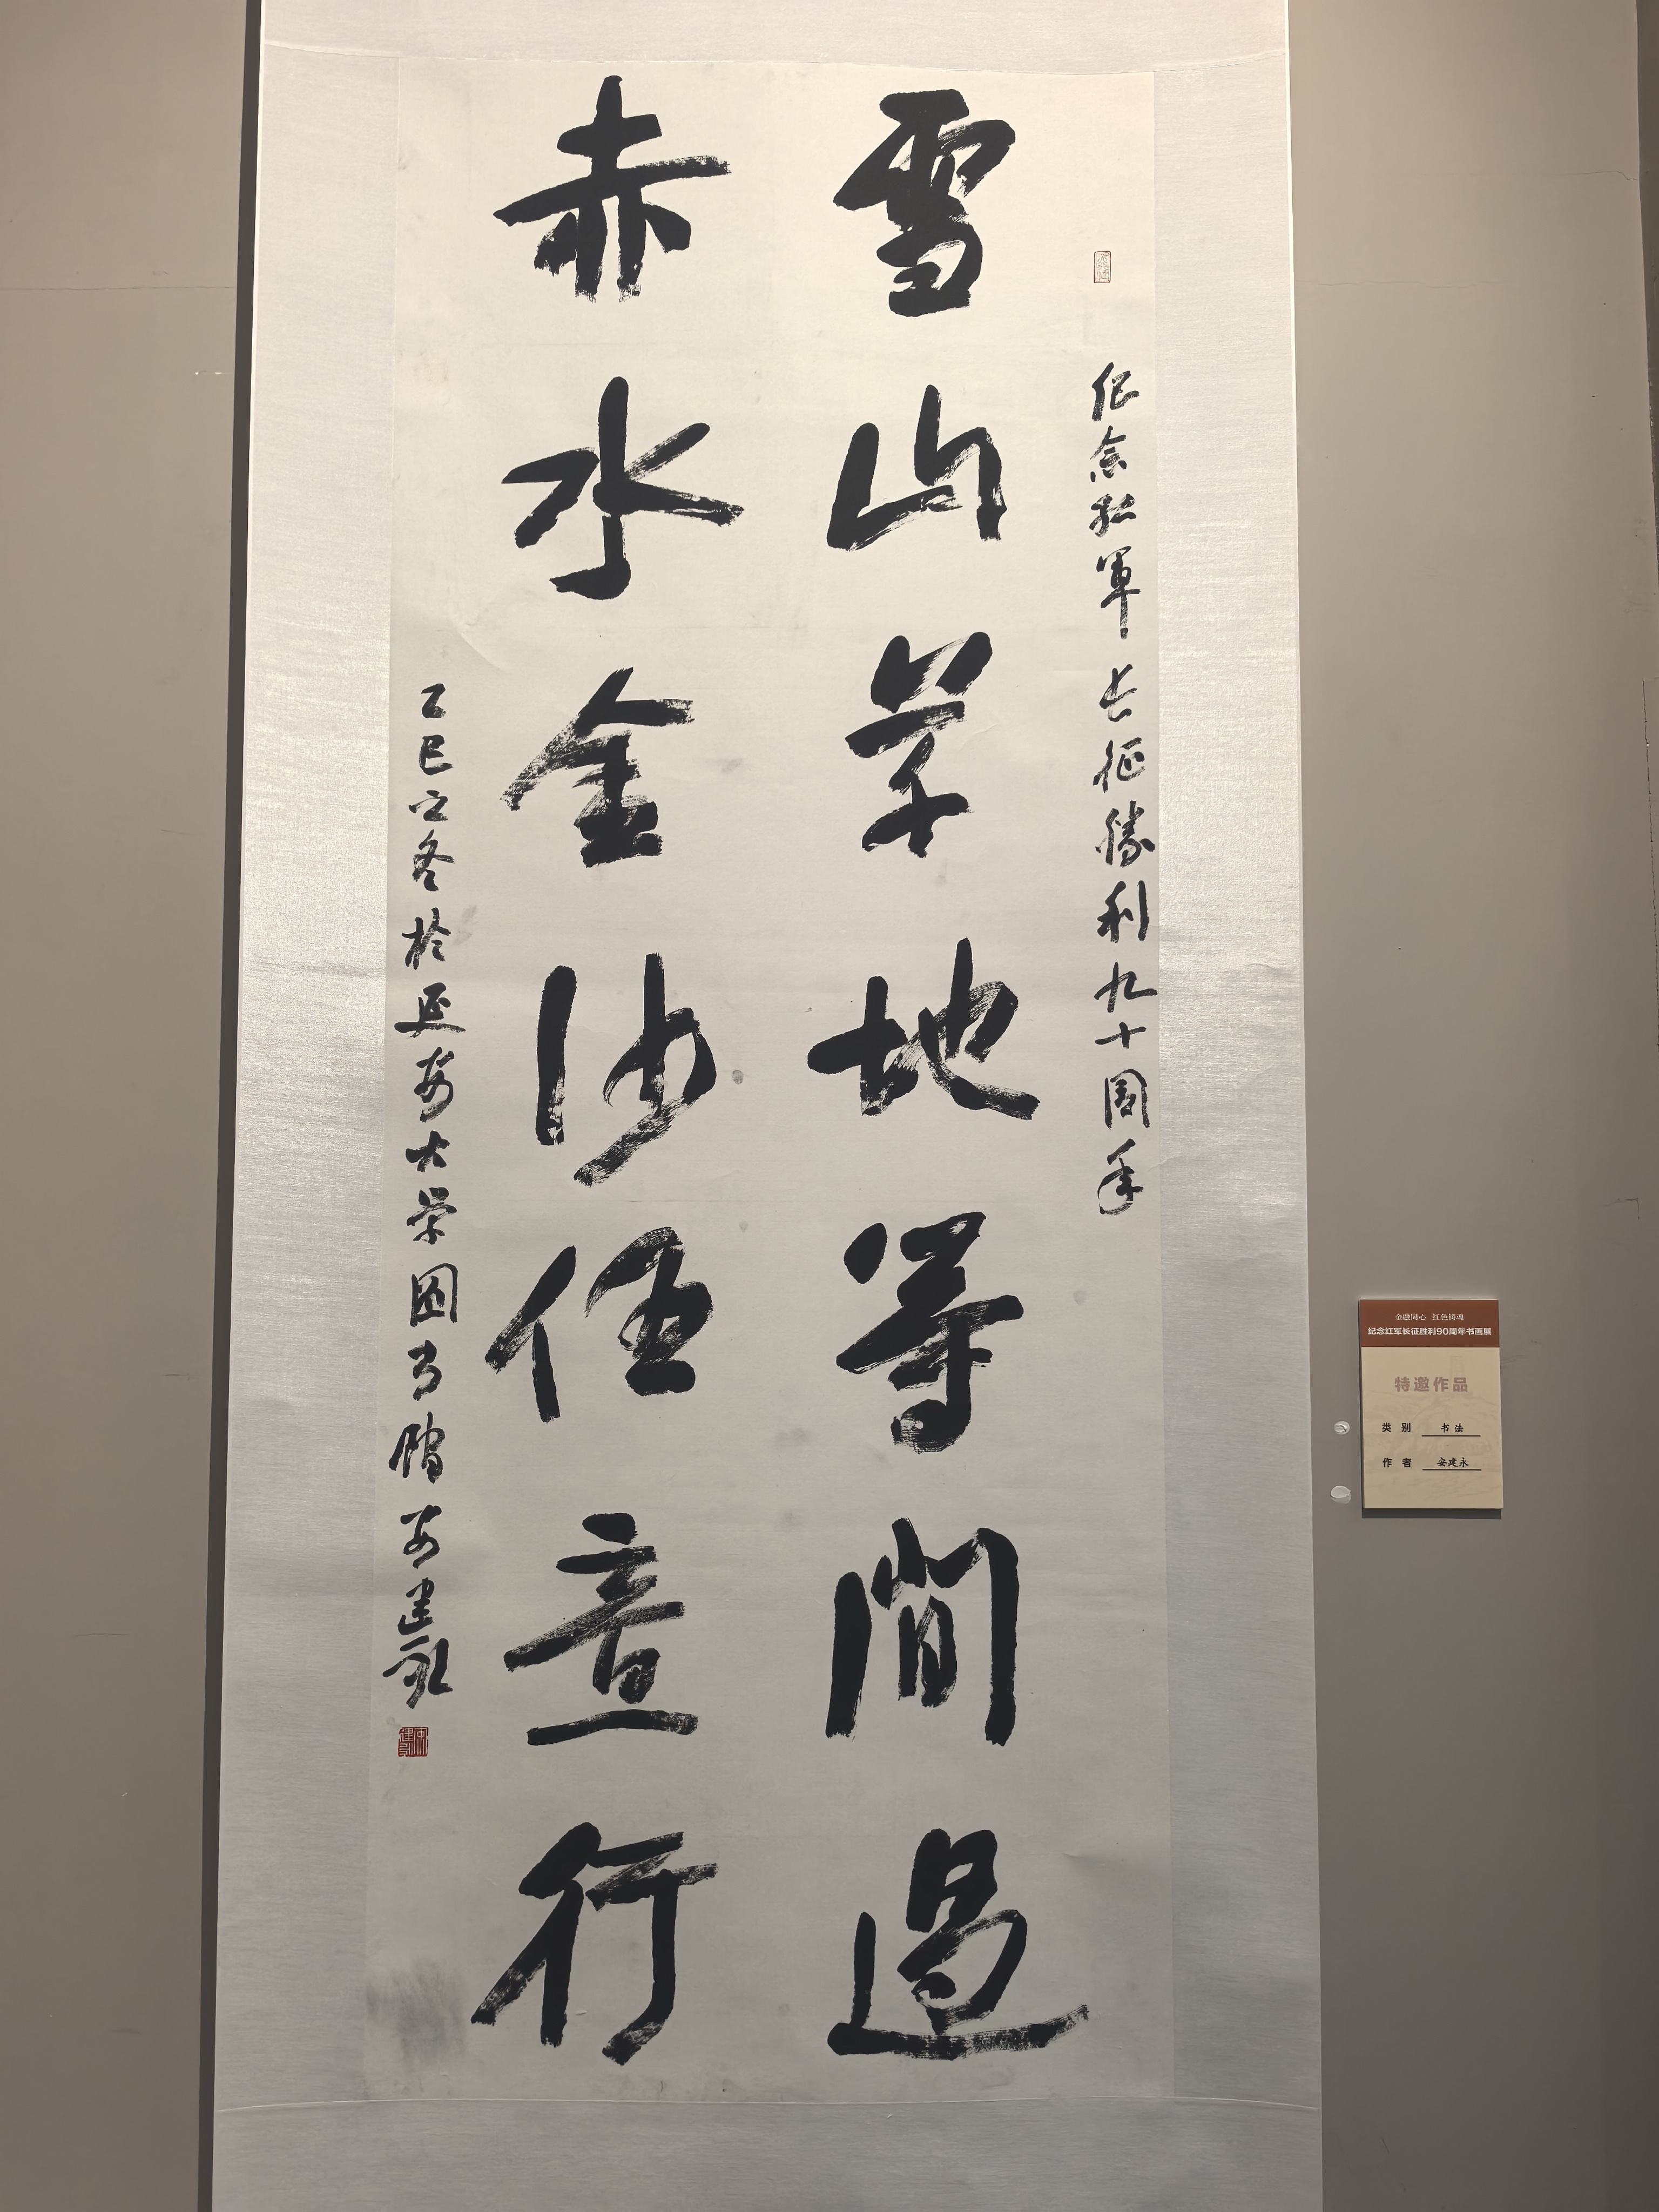 紀念紅軍长征勝利九十周年
雪山草地等間過
赤水金沙任意行
乙巳立冬於延安大学圖书館安建永
金融同心 红色铸魂
纪念红军长征胜利90周年书画展
特邀作品
类别 书法
作者 安建永